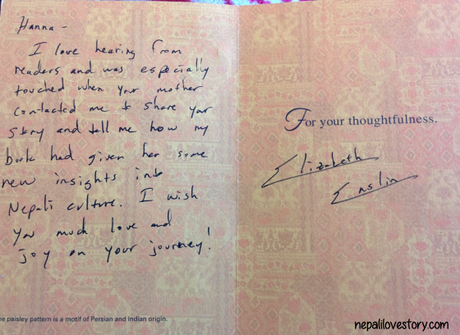 Hanna -
I love hearing from
readers and was especially
touched when your mother
contacted me to share your
story and tell me how my
book had given her some
new insights into
Nepali culture. I wish
you much love and
joy on your journey!
he paisley pattern is a motif of Persian and Indian origin.
For your thoughtfulness.
Elizabeth
Enslin
nepalilovestory.com